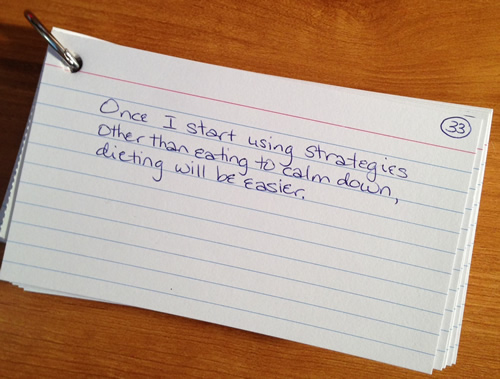 33
Once I start using strategies
other than eating to calm down,
dieting will be easier.